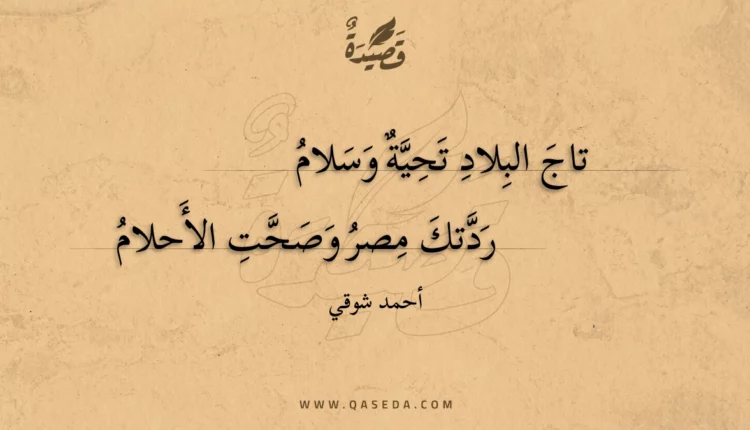 قَصِيدَةٌ
تاجَ البِلادِ تَحِيَّةٌ وَسَلامُ
رَدَّتكَ مِصرُ وَصَحَّتِ الأَحلامُ
أحمد شوقي
WWW.QASEDA.COM